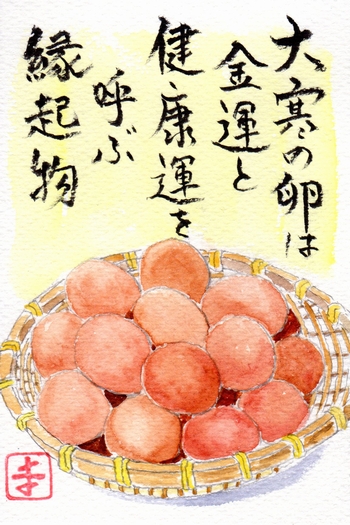 大寒の卵は
金運と
健康運を
呼ぶ
縁起物